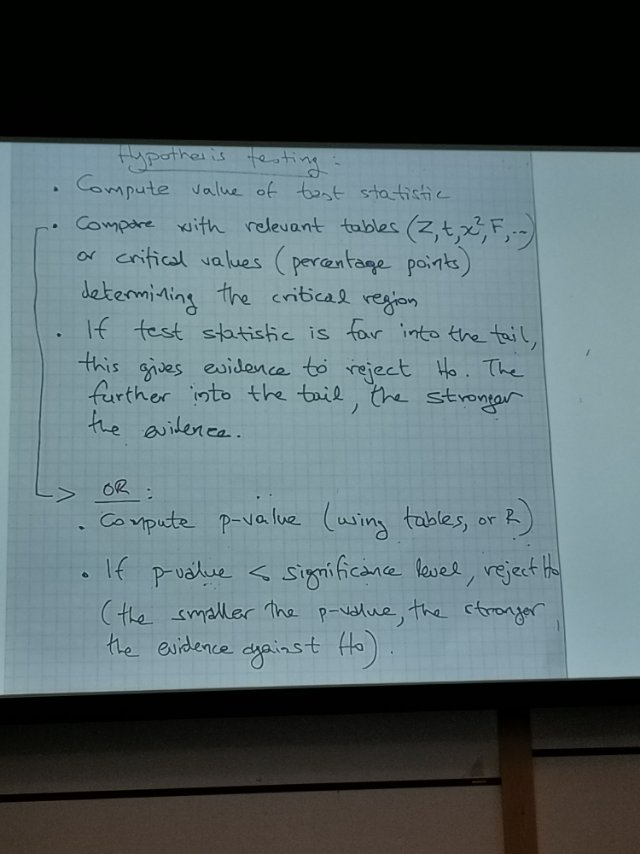 Hypothesis testing:
• Compute value of test statistic
• Compare with relevant tables (Z, t, x², F, ...)
or critical values (percentage points)
determining the critical region
• If test statistic is far into the tail,
this gives evidence to reject Ho. The
further into the tail, the stronger
the evidence.
OR:
• Compute p-value (using tables, or R)
• If p-value < significance level, reject Ho
(the smaller the p-value, the stronger
the evidence against Ho).